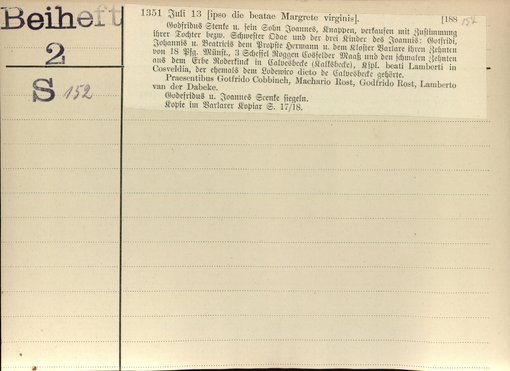 Beiheft
2
S 152
1351 Juli 13 [ipso die beatae Margrete virginis]. [188
152
Godfridus Stenke u. sein Sohn Joannes, Knappen, verkaufen mit Zustimmung
ihrer Tochter bezw. Schwester Odae und der drei Kinder des Joannis: Gotfridi,
Johannis u. Beatricis dem Propste Hermann u. dem Kloster Varlare ihren Zehnten
von 18 Pfg. Münst., 3 Scheffel Roggen Cosfelder Maaß und den schmalen Zehnten
aus dem Erbe Roderkinck in Calvesbecke (Kalksbecke), Kspl. beati Lamberti in
Cosveldia, der ehemals dem Lodewico dicto de Calvesbecke gehörte.
Praesentibus Gotfrido Cobbinch, Machario Rost, Godfrido Rost, Lamberto
van der Dabeke.
Godefridus u. Joannes Stenke siegeln.
Kopie im Varlarer Kopiar S. 17/18.